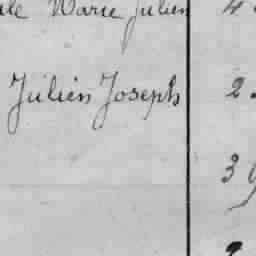 Marie Julien 4
Julien Joseph 2
3